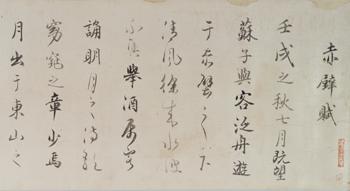 赤壁賦
壬戌之秋七月既望
蘇子與客泛舟遊
于赤壁之下
清風徐來水波
不興舉酒屬客
誦明月之詩歌
窈窕之章少焉
月出于東山之